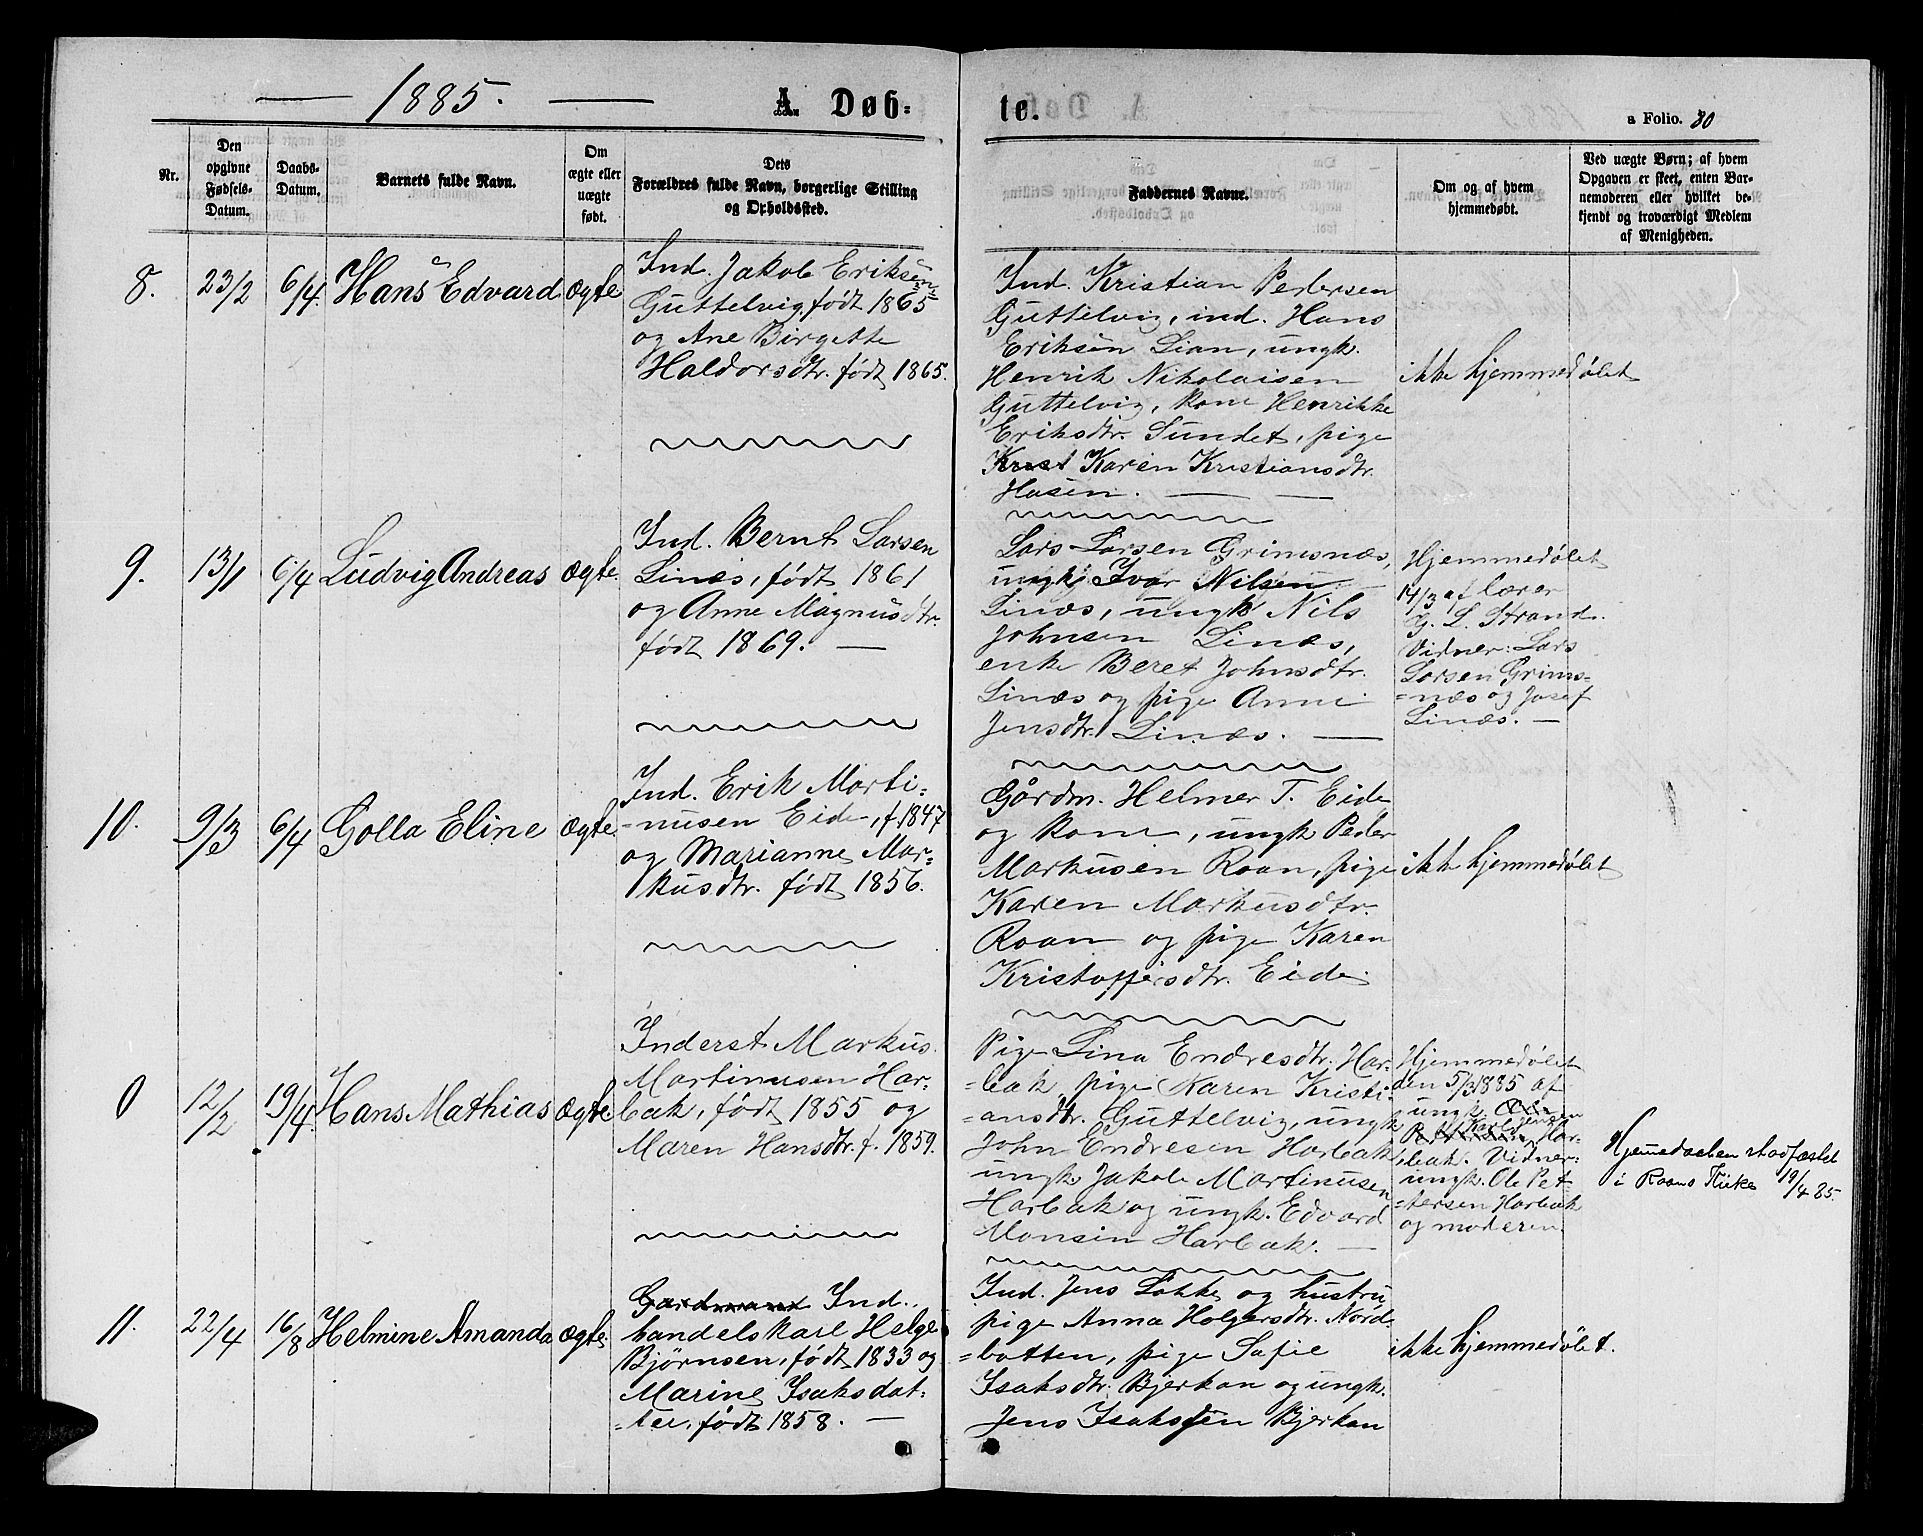 1885.
A. Døb-
te.
a Folio. 80
Nr.
Den
opgivne
Fødsels-
Datum.
Daabs-
Datum.
Barnets fulde Navn.
Om
ægte eller
uægte
født.
Dets
Forældres fulde Navn, borgerlige Stilling
og Opholdssted.
Faddernes Navne.
Om og af hvem
hjemmedøbt.
Ved uægte Børn; af hvem
Opgaven er skeet, enten Bar-
nemoderen eller hvilket be-
kjendt og troværdigt Medlem
af Menigheden.
8.
23/2
6/4.
Hans Edvard
Ægte
Ind. Jakob Eriksen
Guttelvig, født 1865
og Ane Birgette
Haldorsdtr. født 1865.
Ind. Kristian Pedersen
Guttelvig, ind. Hans
Eriksen Lian, ungk.
Henrik Nikolaisen
Guttelvig, kone Henrikke
Eriksdtr. Sundet, pige
Krist Karen Kristiansdtr.
Hasen. —
ikke hjemmedøbt
9.
13/1
6/4
Ludvig Andreas
Ægte.
Ind. Bernt Larsen
Linæs, født 1861
og Anne Magnusdtr.
født 1869. —
Lars Larsen Grimsnæs,
ungk. Ivar Nilsen
Linæs, ungk. Nils
Johnsen Linæs,
enke Beret Johnsdtr.
Linæs og pige Anne
Jensdtr. Linæs. —
Hjemmedøbt
14/3 af lærer
G. L. Strand.
Vidner: Lars
Larsen Grims-
=næs og Josef
Linæs. —
10.
9/3
6/4
Golla Eline
Ægte.
Ind. Erik Marti-
=nusen Eide, f. 1847
og Marianne Mar-
kusdtr. født 1856.
Gårdm. Helmer T. Eide
og kone, ungk Peder
Markusen Roan, pige
Karen Markusdtr.
Roan og pige Karen
Kristoffersdtr. Eide.
ikke hjemmedøbt
0
12/2
19/4.
Hans Mathias
Ægte
Inderst Markus
Martinusen Har-
bak, født 1855 og
Maren Hansdtr. f. 1859.
Pige Lina Endresdtr. Har-
=bak, pige Karen Kristi-
=ansdtr. Guttelvig, ungk
John Endresen Harbak
ungk. Jakob Martinusen
Harbak og ungk. Edvard
Monsen Harbak. —
Hjemmedøbt
den 5/3 1885 af
ungk.
Har-
bak. Vidner:
ungk. Ole Pet-
=tersen Harbak
og moderen.
Hjemmedaaben stadfæstet
i Roans Kirke 19/4 85.
11.
22/4
16/8
Helmine Amanda
Ægte.
Gaardmand Ind.,
handelskarl Helge
Bjørnsen, født 1833 og
Marine Isaksdat-
-ter, født 1858. —
Ind. Jens Løkke og hustru
pige Anna Holgersdtr. Nord-
=botten, pige Safie
Isaksdtr. Bjerkan og ungk.
Jens Isaksen Bjerkan
ikke hjemmedøbt.